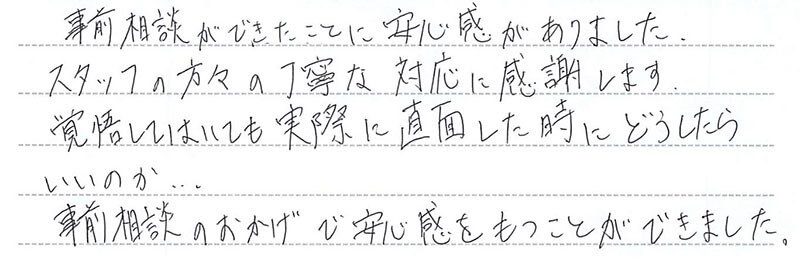 事前相談ができたことに安心感がありました.
スタッフの方々の丁寧な対応に感謝します.
覚悟してはいても実際に直面した時にどうしたら
いいのか...
事前相談のおかげで安心感をもつことができました。